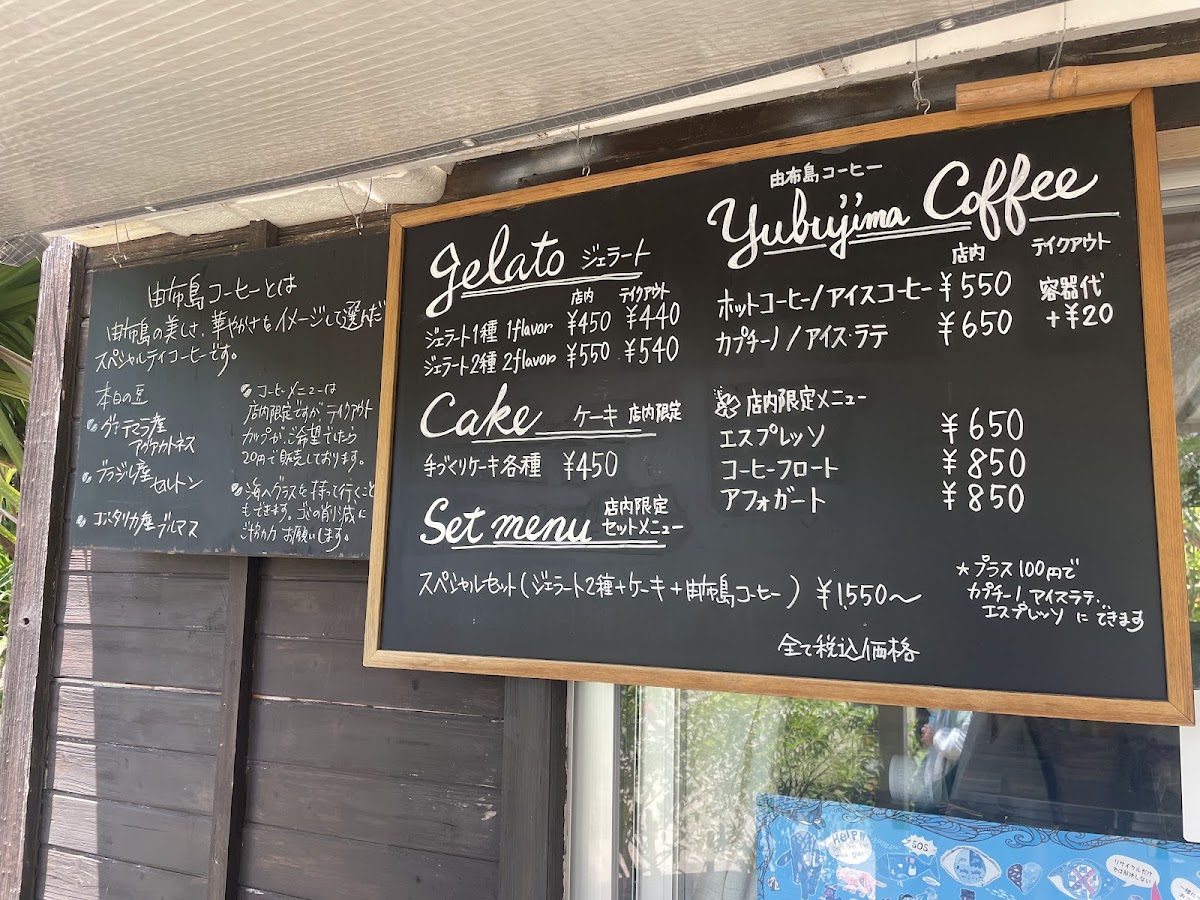 由布島コーヒーとは
由布島の美しさ、華やかさをイメージして選んだ
スペシャルティコーヒーです。
本日の豆
グァテマラ産
アグアカトネス
ブラジル産
セルトン
コスタリカ産 ブルマス
コーヒーメニューは
店内限定ですが、テイクアウト
カップが、ご希望でしたら
20円で販売しております。
海へグラスを持って行くこと
もできます。ゴミの削減に
ご協力 お願いします。
gelato ジェラート
店内 テイクアウト
ジェラート1種 1flavor ¥450 ¥440
ジェラート2種 2flavor ¥550 ¥540
Cake ケーキ 店内限定
手づくりケーキ各種 ¥450
Set menu 店内限定
セットメニュー
スペシャルセット(ジェラート2種+ケーキ+由布島コーヒー) ¥1,550〜
全て税込価格
由布島コーヒー
Yubujima Coffee
店内 テイクアウト
ホットコーヒー/アイスコーヒー ¥550 容器代
+¥20
カプチーノ/アイス・ラテ ¥650
店内限定メニュー
エスプレッソ ¥650
コーヒーフロート ¥850
アフォガート ¥850
★プラス100円で
カプチーノ、アイスラテ、
エスプレッソ にできます
HELP!
SOS
リサイクルだけ
では解決しない